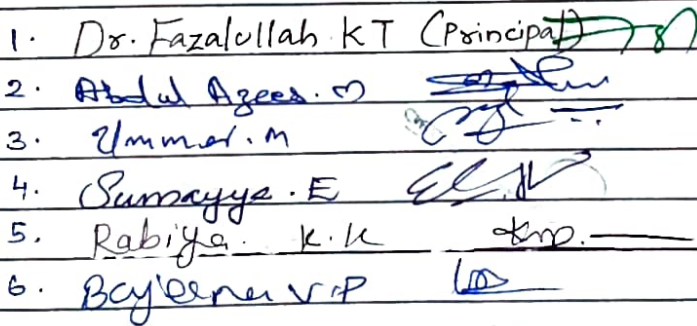 1. Dr. Fazalullah KT (Principal)
2. Abdul Azees. M
3. Ummer. M
4. Sumayya. E
5. Rabiya. K.K
6. V.P